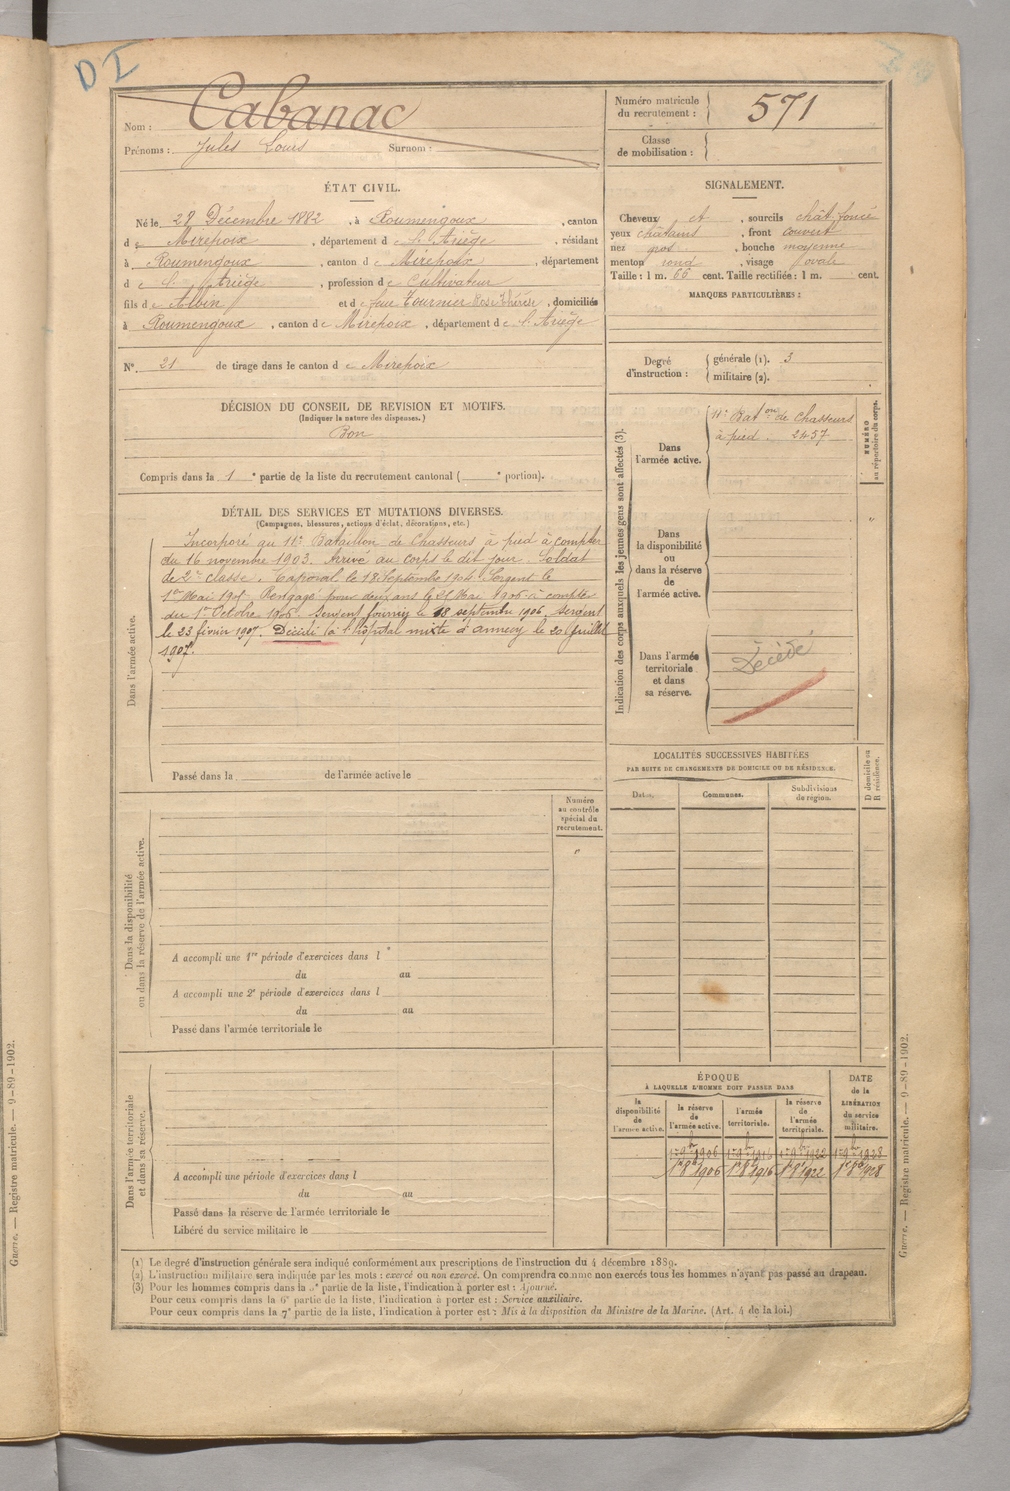 DI
Nom : Cabanac
Prénoms : Jules Louis Surnom :
Numéro matricule du recrutement : 571
Classe de mobilisation :
ÉTAT CIVIL.
Né le 28 Décembre 1882, à Roumengoux, canton
de Mirepoix, département de l'Ariège, résidant
à Roumengoux, canton de Mirepoix, département
de l'Ariège, profession de Cultivateur
fils de Albin et de feue Tournier Rose Thérèse, domiciliés
à Roumengoux, canton de Mirepoix, département de l'Ariège
N° 21 de tirage dans le canton de Mirepoix
SIGNALEMENT.
Cheveux ct, sourcils chât. foncé
yeux châtains, front couvert
nez gros, bouche moyenne
menton rond, visage ovale
Taille : 1 m. 66 cent. Taille rectifiée : 1 m. cent.
MARQUES PARTICULIÈRES :
Degré d'instruction : générale (1). 3
militaire (2).
DÉCISION DU CONSEIL DE REVISION ET MOTIFS.
(Indiquer la nature des dispenses.)
Bon
Compris dans la 1e partie de la liste du recrutement cantonal ( e portion).
DÉTAIL DES SERVICES ET MUTATIONS DIVERSES.
(Campagnes, blessures, actions d'éclat, décorations, etc.)
Dans l'armée active.
Incorporé au 11e Bataillon de Chasseurs à pied à compter
du 16 novembre 1903. Arrivé au corps le dit jour. Soldat
de 2e classe. Caporal le 18 Septembre 1904 Sergent le
1er Mai 190 Rengagé pour deux ans le 21 Mai 1906 à compter
du 1er Octobre 1906. Sergent fourrier le 18 septembre 1906. Sergent
le 23 février 1907. Décédé à l'hôpital mixte d'annecy le 20 Juillet
1907.
Passé dans la de l'armée active le
Indication des corps auxquels les jeunes gens sont affectés (3).
NUMÉRO au répertoire du corps.
Dans l'armée active.
11e Baton de Chasseurs
à pied. 2457
Dans la disponibilité ou dans la réserve de l'armée active.
"
Dans l'armée territoriale et dans sa réserve.
Décédé
LOCALITÉS SUCCESSIVES HABITÉES
PAR SUITE DE CHANGEMENTS DE DOMICILE OU DE RÉSIDENCE.
Dates. Communes. Subdivisions de région.
D domicile ou R résidence.
Dans la disponibilité ou dans la réserve de l'armée active.
Numéro au contrôle spécial du recrutement.
"
A accompli une 1re période d'exercices dans l
du au
A accompli une 2e période d'exercices dans l
du au
Passé dans l'armée territoriale le
Dans l'armée territoriale et dans sa réserve.
A accompli une période d'exercices dans l
du au
Passé dans la réserve de l'armée territoriale le
Libéré du service militaire le
ÉPOQUE
À LAQUELLE L'HOMME DOIT PASSER DANS
DATE de la LIBÉRATION du service militaire.
la disponibilité de l'armée active. la réserve de l'armée active. l'armée territoriale. la réserve de l'armée territoriale.
1er 9bre 1906 1er 9bre 1916 1er 9bre 1922 1er 9bre 1928
1er 8bre 1906 1er 8bre 1916 1er 8bre 1922 1er 8bre 1928
(1) Le degré d'instruction générale sera indiqué conformément aux prescriptions de l'instruction du 4 décembre 1889.
(2) L'instruction militaire sera indiquée par les mots : exercé ou non exercé. On comprendra comme non exercés tous les hommes n'ayant pas passé au drapeau.
(3) Pour les hommes compris dans la 5e partie de la liste, l'indication à porter est : Ajourné.
Pour ceux compris dans la 6e partie de la liste, l'indication à porter est : Service auxiliaire.
Pour ceux compris dans la 7e partie de la liste, l'indication à porter est : Mis à la disposition du Ministre de la Marine. (Art. 4 de la loi.)
Guerre. — Registre matricule. — 9-89-1902.
Guerre. — Registre matricule. — 9-89-1902.